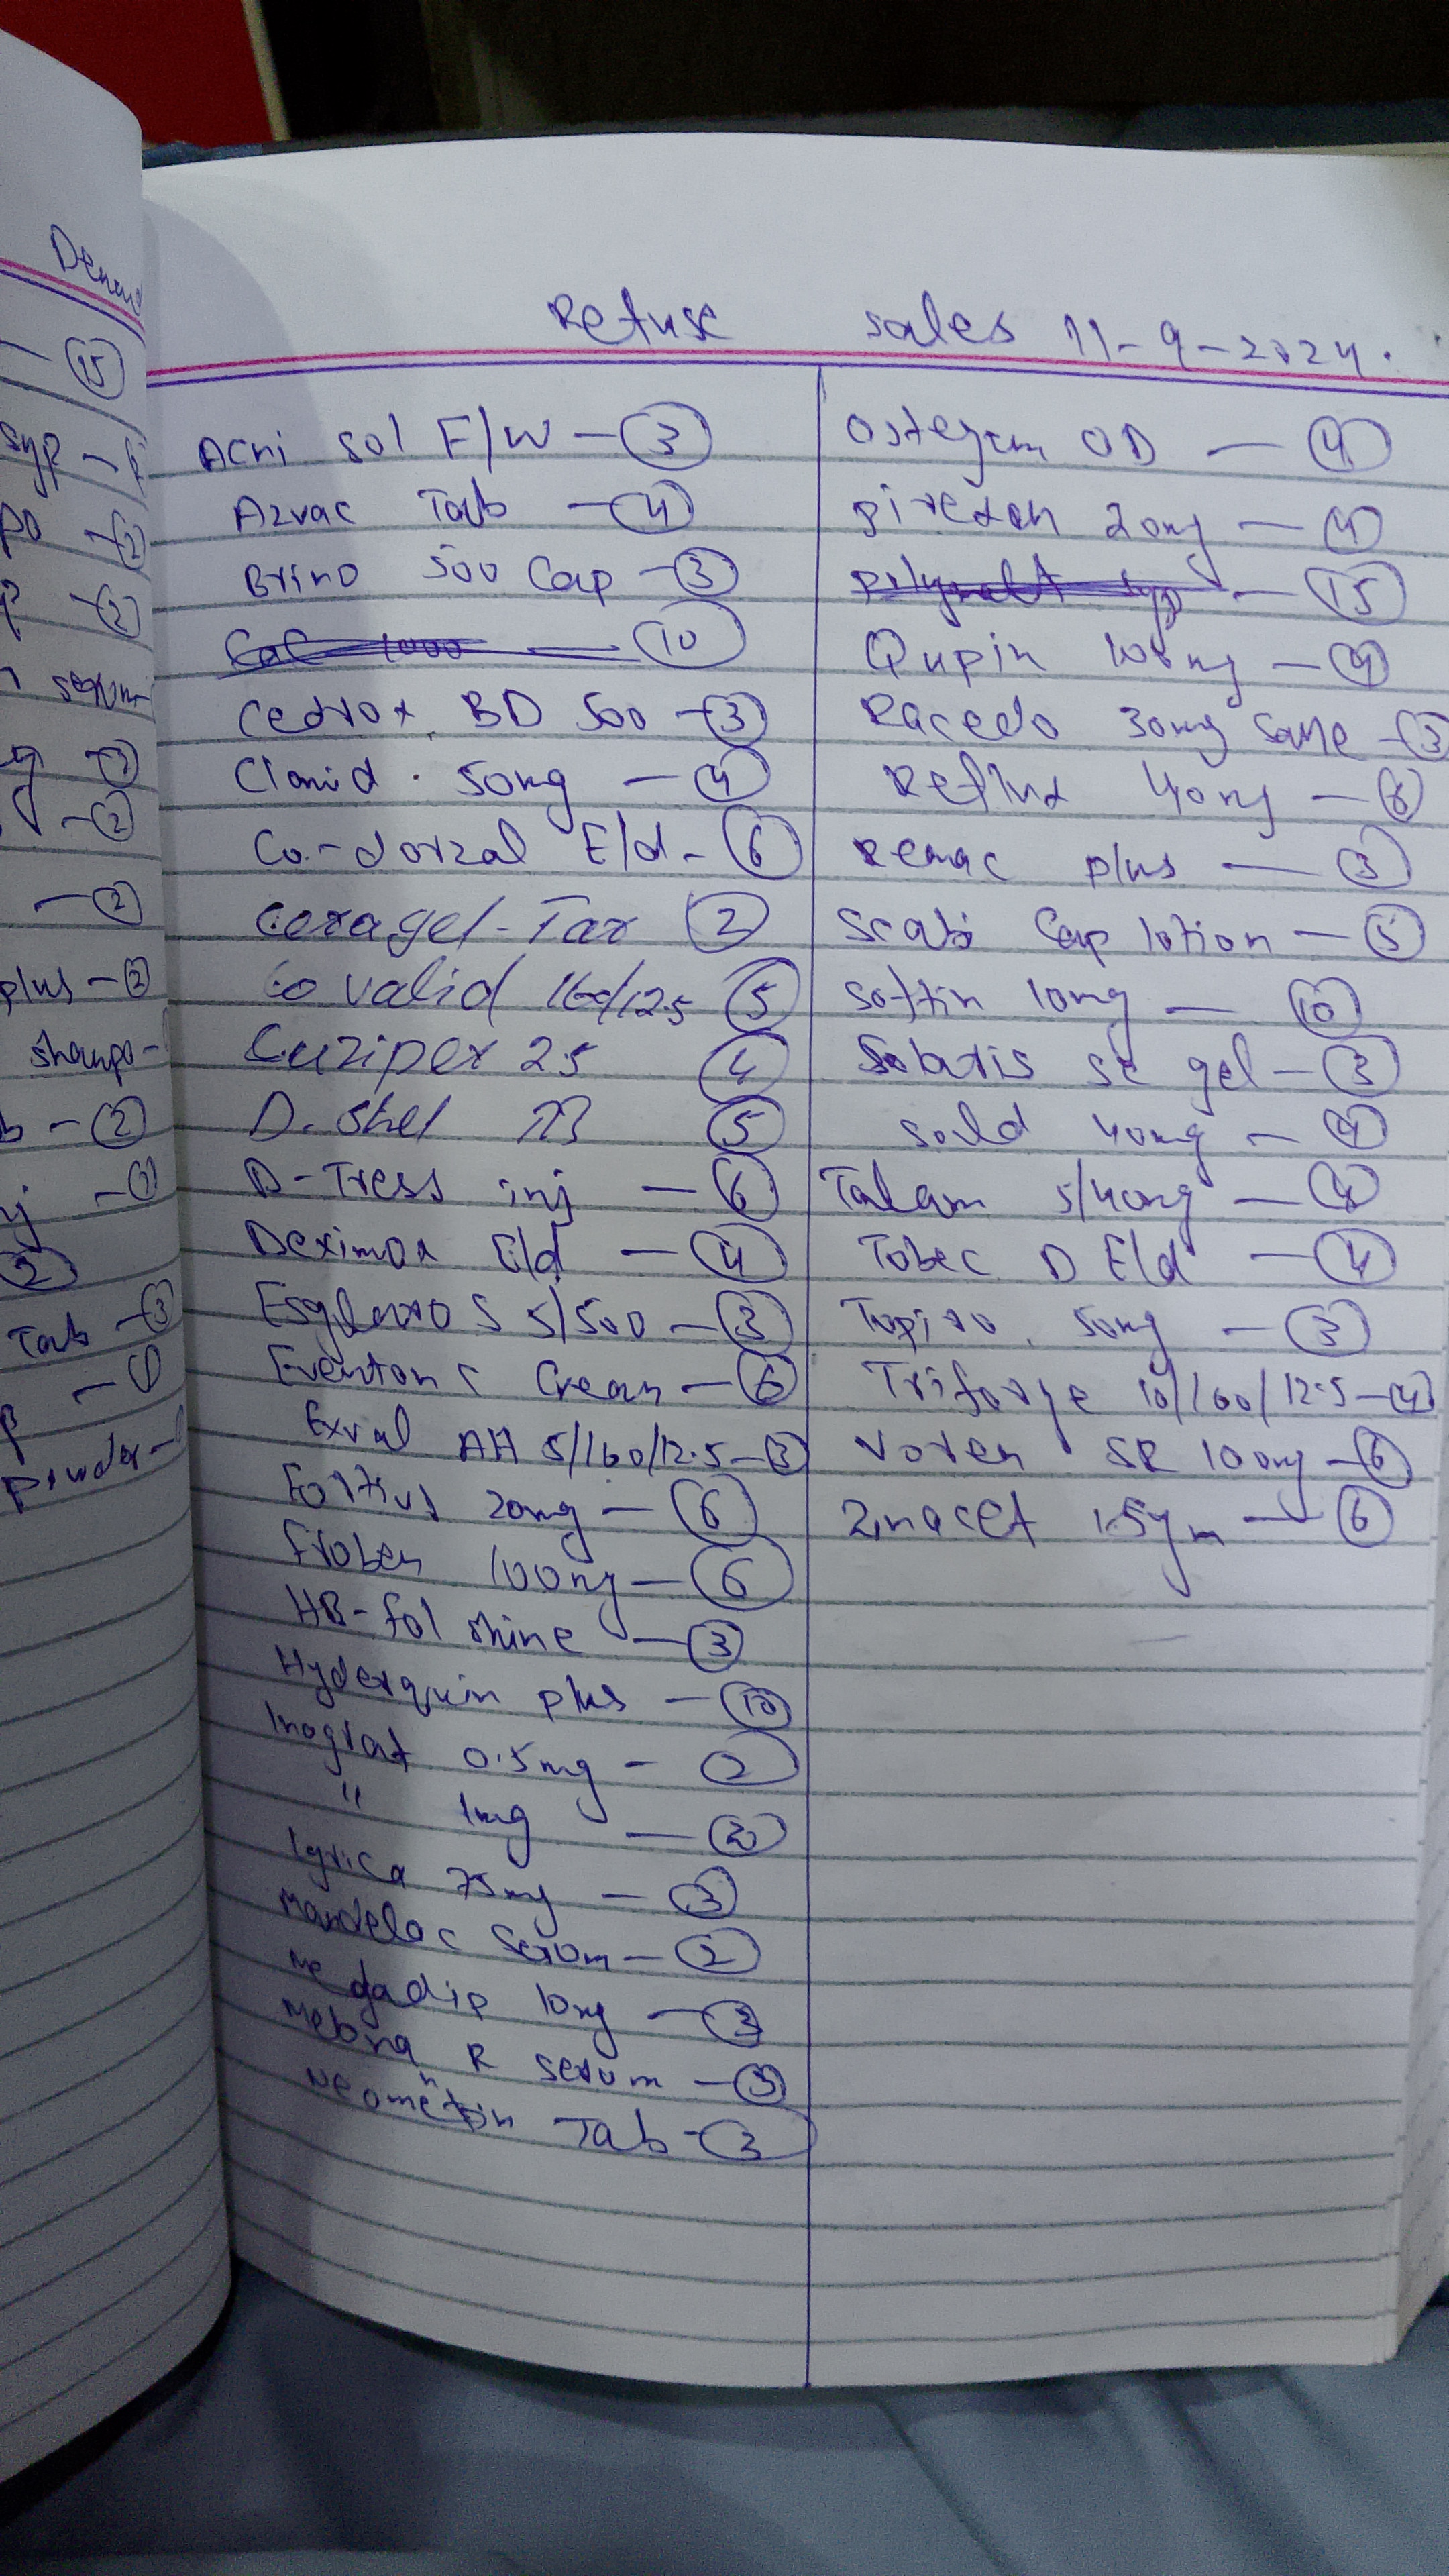 Demand
15
syp -
po - 2
p - 2
serum
- 2
- 2
plus - 2
shampo -
b - 2
2
Tab - 3
Powder -
Refuse sales 11-9-2024.
Acni sol F/W - 3
Azvac Tab - 4
Brino 500 Cap - 3
Cac 1000 - 10
Cedrox BD 500 - 3
Clomid . 50mg - 4
Co.-dorzal E/d - 6
Ceragel-Tar 2
Co valid 160/12.5 5
Cuzipex 25 4
D. Shel 5
D-Tress inj - 6
Deximox E/d - 4
S 5/500 - 3
Eventone C Cream - 6
Exval AH 5/160/12.5 - 3
Fortius 20mg - 6
Froben 100mg - 6
HB-fol shine - 3
Hyderquin plus - 10
Inograt 0.5mg - 2
" 1mg - 2
lyrica 75mg - 3
Mandelac Serum - 2
Megadip 10mg - 3
R serum - 3
Tab - 3
Ostegem OD - 4
pirexon 20mg - 4
polymalt syp - 15
Qupin 100mg - 4
Racedo 30mg - 3
Reflux 40mg - 6
Remac plus - 3
Scabi Cap lotion - 5
Softin 10mg - 10
Solaris se gel - 3
40mg - 4
Talam 5/40mg - 4
Tobec D E/d - 4
50mg - 3
Triforge 10/160/12.5 - 4
Voren SR 100mg - 6
Zinacef 1.5gm - 6